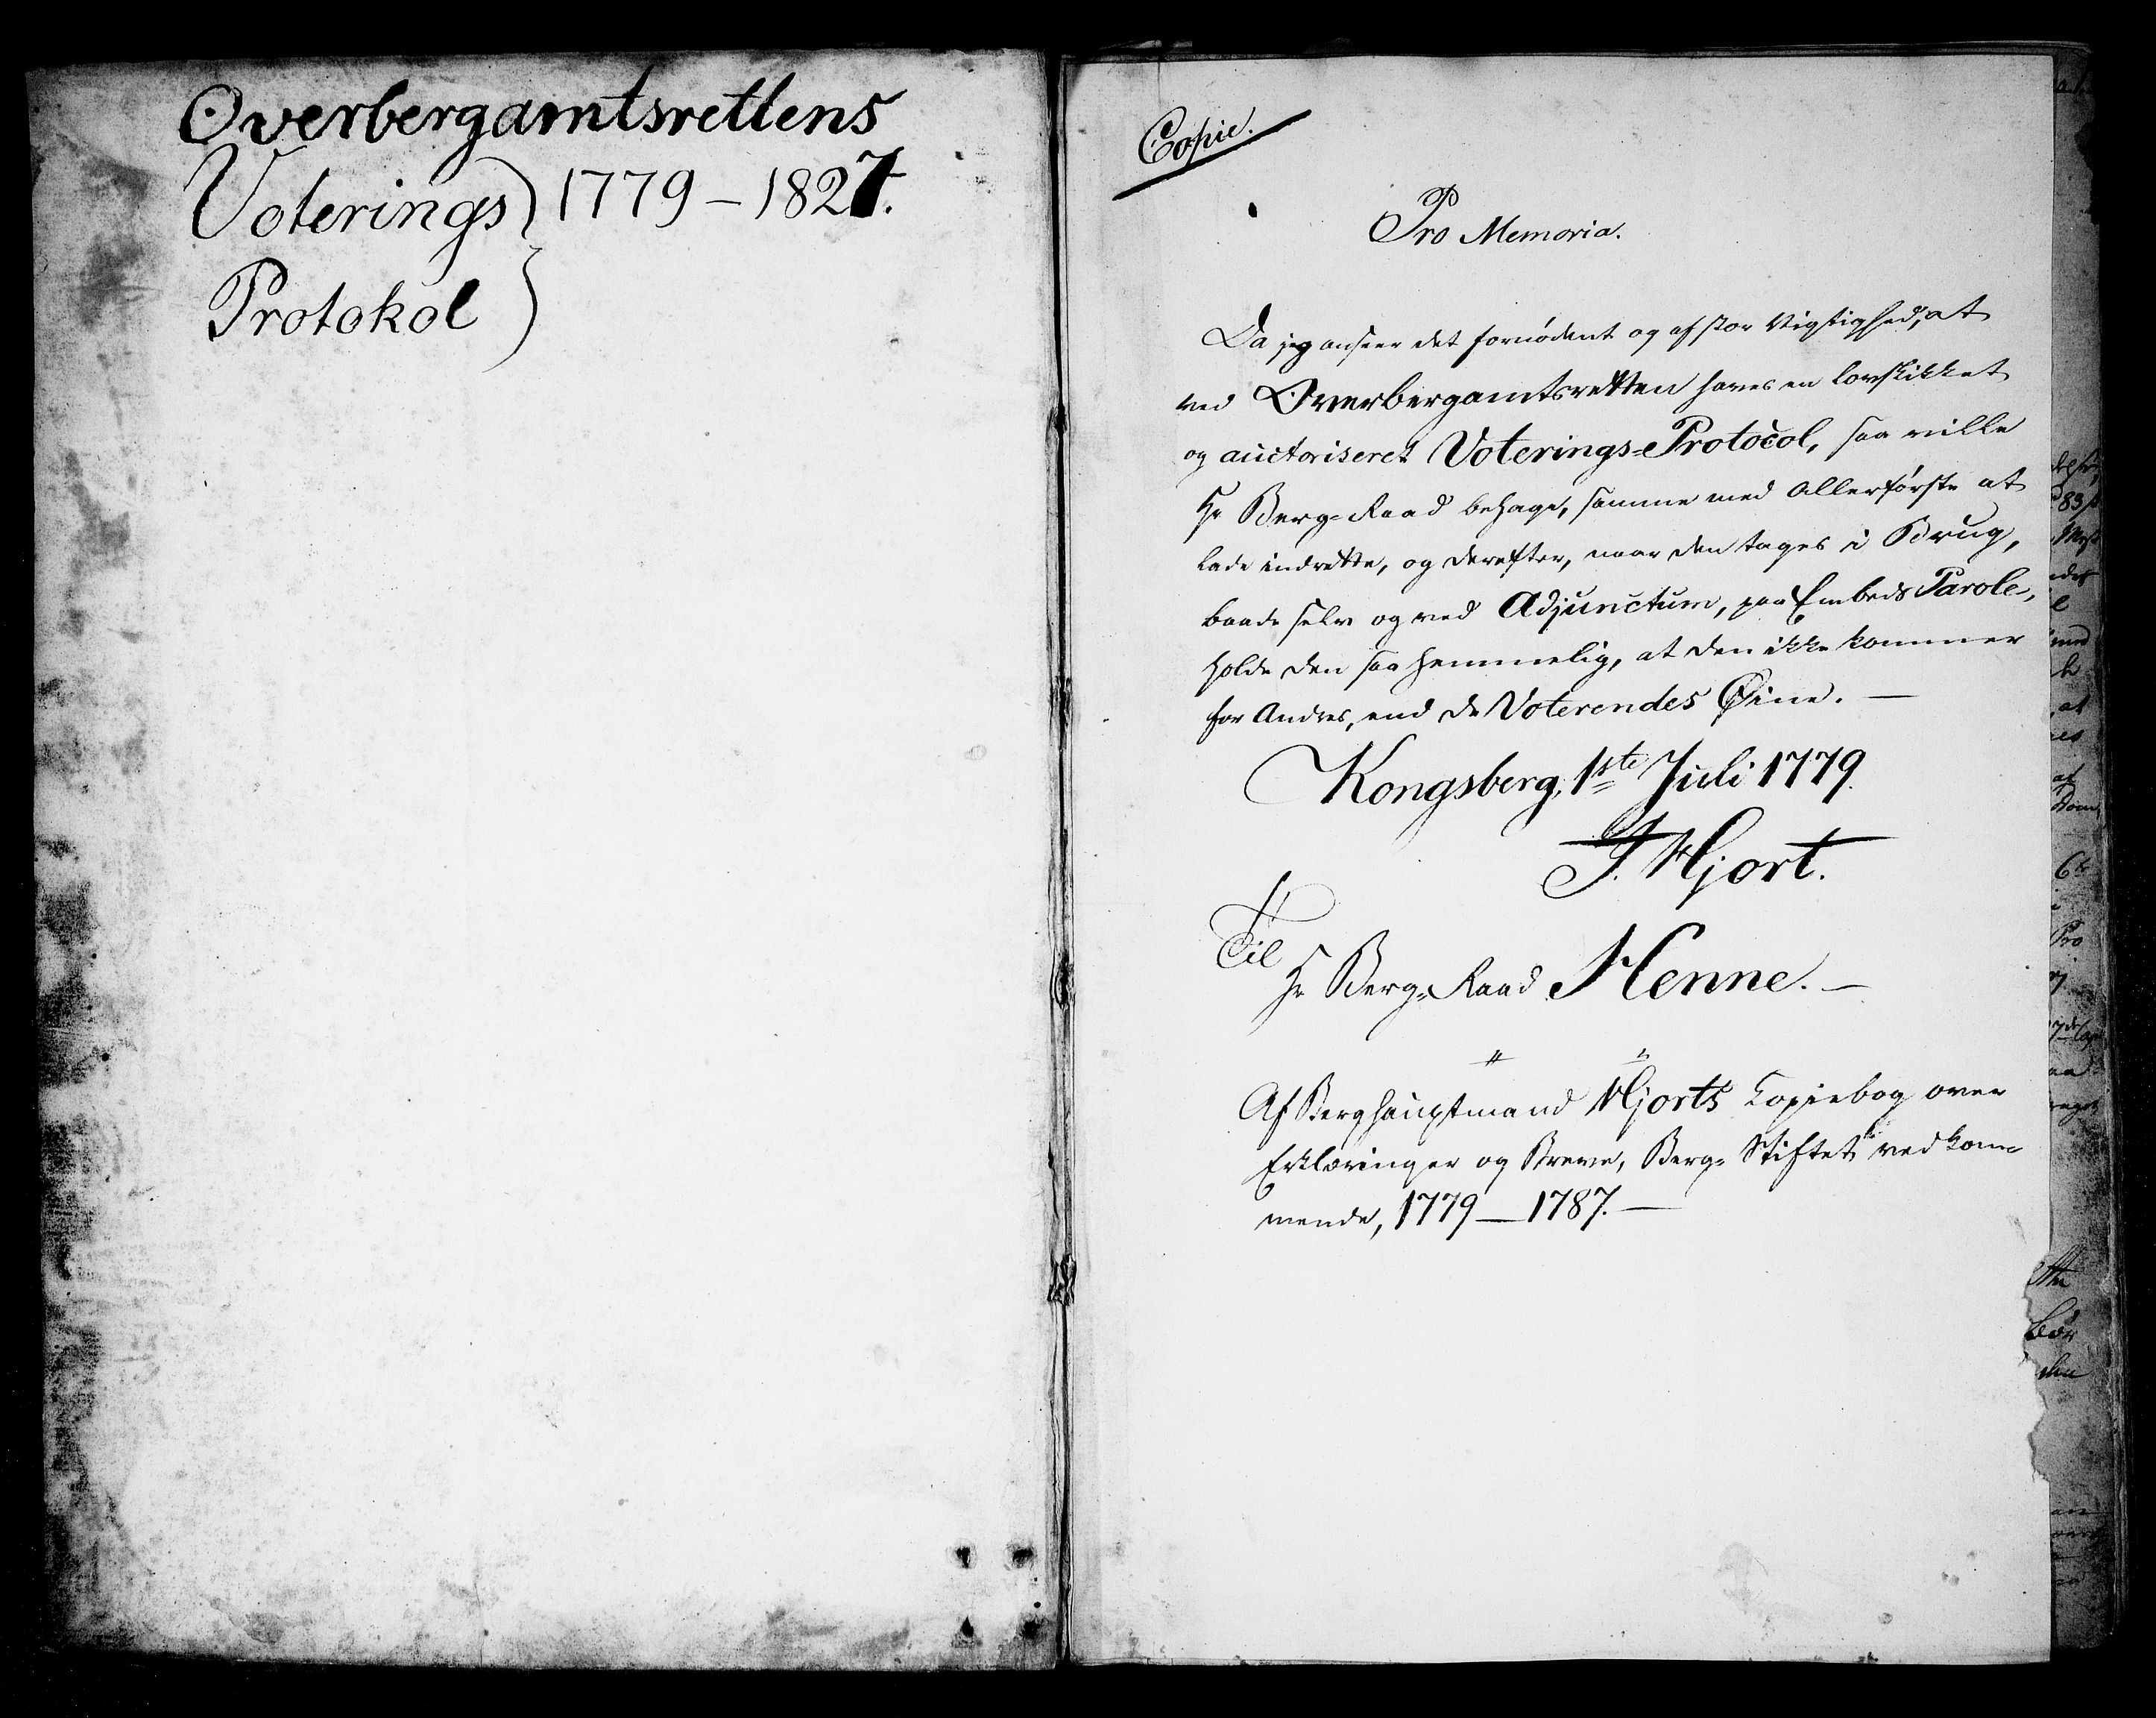 Overbergamtsrettens
Voterings } 1779 – 1827.
Protokol }
Copie.
Pro Memoria.
Da jeg anseer det fornødent og af stor Vigtighed, at
ved Overbergamtsretten haves en lovskikket
og auctoriseret Voterings-Protocol, saa ville
Hr Berg-Raad behage, samme med allerførste at
lade indrette, og derefter, naar den tages i Brug,
baade selv og ved Adjunctum, paa Embeds Parole,
holde den saa hemmelig, at den ikke kommer
for Andres, end de Voterendes Øine. —
Kongsberg, 1ste Juli 1779.
J. Hjort.
Til
Hr Berg-Raad Henne. —
Af Berghauptmand Hjorts Copiebog over
Erklæringer og Breve, Berg-Stiftet vedkom-
mende, 1779 — 1787. —